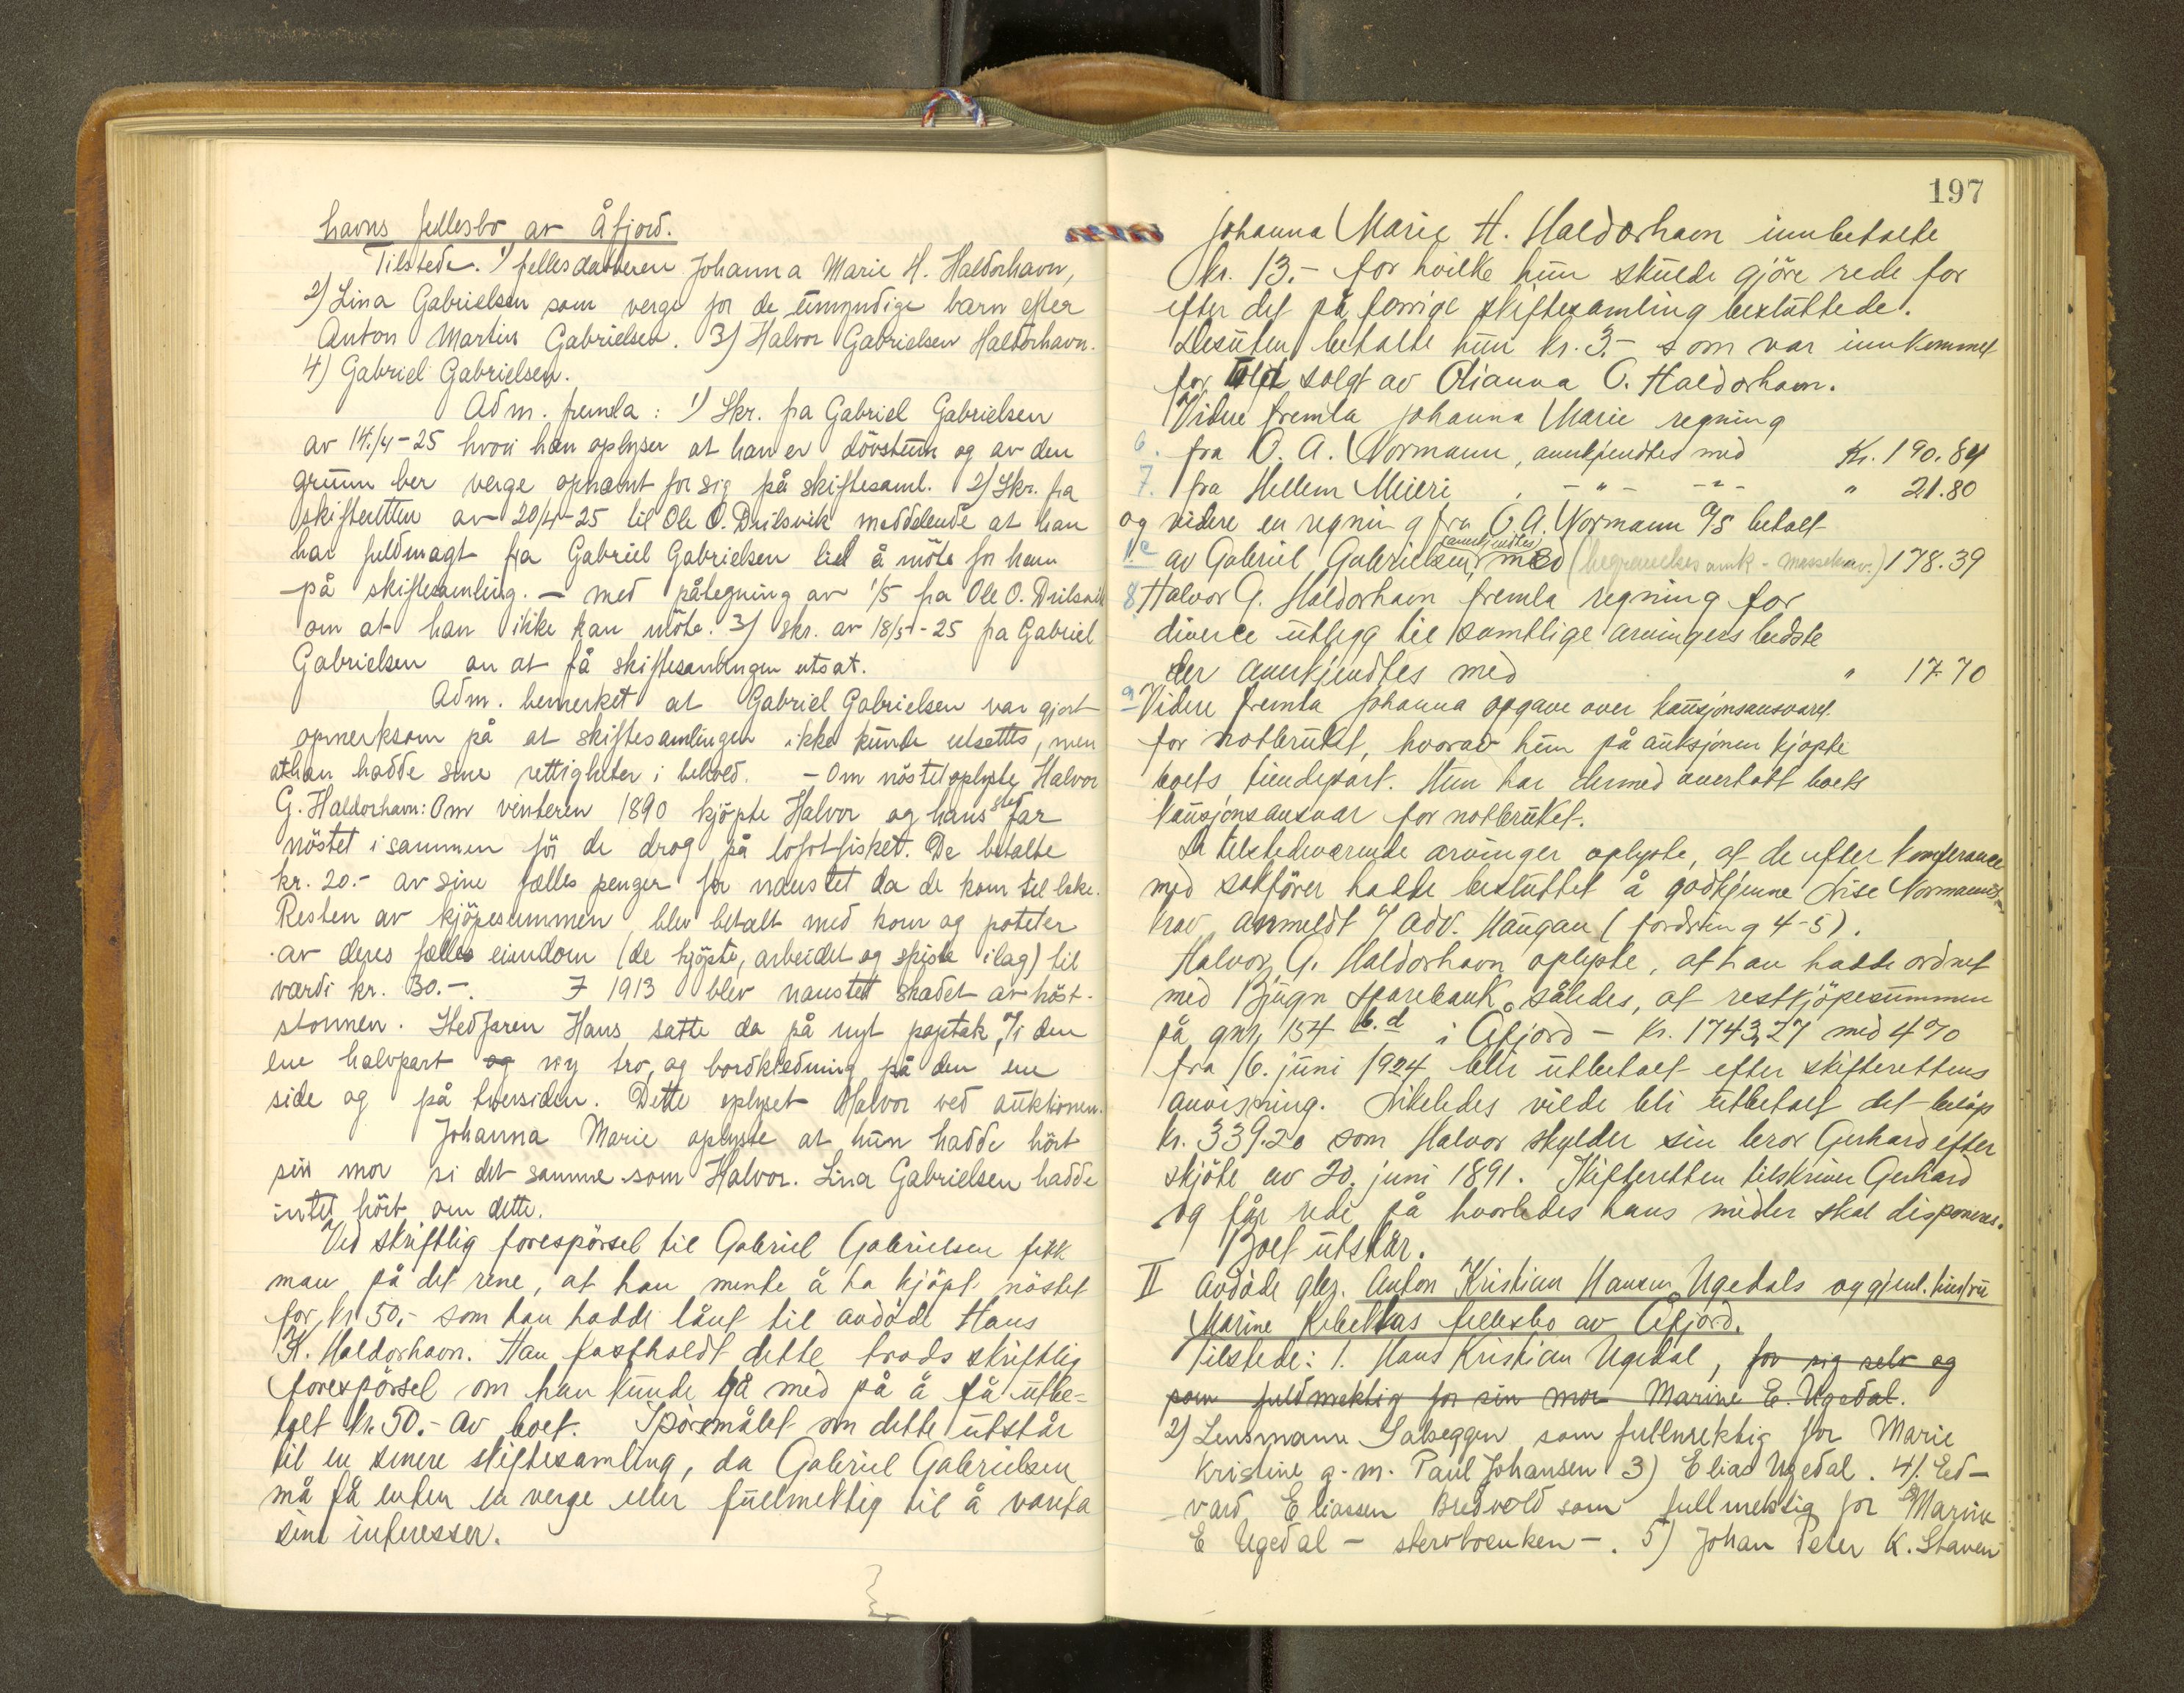 havns fellesbo av Åfjord.
Tilstede. 1) fellesdatteren Johanna Marie H. Haldorhavn,
2) Lina Gabrielsen som verge for de umyndige barn efter
Anton Martin Gabrielsen. 3) Halvor Gabrielsen Haldorhavn.
4) Gabriel Gabrielsen.
Adm. fremla: 1) Skr. fra Gabriel Gabrielsen
av 14/4-25 hvori han oplyser at han er døvstum og av den
grunn ber verge opnevnt for sig på skiftesaml. 2) Skr. fra
skifteretten av 20/4-25 til Ole O. Drilsvik meddelende at han
har fuldmagt fra Gabriel Gabrielsen til å möte for ham
på skiftesamling. - med påtegning av 1/5 fra Ole O. Drilsvik
om at han ikke kan möte. 3) skr. av 18/5-25 fra Gabriel
Gabrielsen om at få skiftesamlingen utsat.
Adm. bemerket at Gabriel Gabrielsen var gjort
opmerksom på at skiftesamlingen ikke kunde utsettes, men
at han hadde sine rettigheter i behold. - Om nöstet oplyste Halvor
G. Haldorhavn: Om vinteren 1890 kjöpte Halvor og hans stedfar
nöstet i sammen för de drog på lofotfisket. De betalte
kr. 20.- av sine fælles penger for naustet da de kom tilbake.
Resten av kjöpesummen blev betalt med korn og poteter
av deres fælles eiendom (de kjöpte, arbeidet og spiste ilag) til
værdi kr. 30.-. I 1913 blev naustet skadet av höst-
stormen. Stedfaren Hans satte da på nyt paptak i den
ene halvpart og ny tro, og bordkledning på den ene
side og på tversiden. Dette oplyset Halvor ved auktionen.
Johanna Marie oplyste at hun hadde hört
sin mor si det samme som Halvor. Lina Gabrielsen hadde
intet hört om dette.
Ved skriftlig forespörsel til Gabriel Gabrielsen fikk
man på det rene, at han mente å ha kjöpt nöstet
for kr 50,- som han hadde lånt til avdöde Hans
K. Haldorhavn. Han fastholdt dette trods skriftlig
forespörsel om han kunde gå med på å få utbe-
talt kr. 50.- av boet. Spörsmålet om dette utstår
til en senere skiftesamling, da Gabriel Gabrielsen
må få enten en verge eller fullmektig til å vareta
sine interesser.
197
Johanna Marie H. Haldorhavn innbetalte
kr. 13.- for hvilke hun skulde gjöre rede for
efter det på forrige skiftesamling besluttede.
Desuten betalte hun kr. 3.- som var innkommet
for solgt av Olianna O. Haldorhavn.
Videre fremla Johanna Marie regning
6. fra O. A. Normann, annerkjendtes med Kr. 190.84
7. fra Hellem Meieri - " - - " - " 21.80
og videre en regning fra O. A. Normann A/S betalt
av Gabriel Gabrielsen, annerkjendtes med (begravelsesomk - massekrav.) 178.39
8 Halvor G. Haldorhavn fremla regning for
diverse utlegg til samtlige arvingers bedste
der annerkjendtes med " 17.70
9 Videre fremla Johanna opgave over kausjonsansvaret
for notbruket, hvorav hun på auksjonen kjöpte
boets tiendepart. Hun har dermed overtatt boets
kausjonsansvar for notbruket.
De tilstedeværende arvinger oplyste, at de efter konferance
med sakförer hadde besluttet å godkjenne Lise Normanns
krav anmeldt v/ adv. Haugan (fordring 4-5).
Halvor G. Haldorhavn oplyste, at han hadde ordnet
med Bjugn Sparebank således, at restkjöpesummen
på gnr. 154 b.d i Åfjord - Kr. 1743,27 med 4%
fra 16. juni 1924 blir utbetalt efter skifterettens
anvisning. Likeledes vilde bli utbetalt det belöp
kr. 339.20 som Halvor skylder sin bror Gerhard efter
skjöte av 20. juni 1891. Skifteretten tilskriver Gerhard
og får rede på hvorledes hans midler skal disponeres.
Boet utstår.
II Avdöde gbr. Anton Kristian Hansen Ugedals og gjenl. hustru
Marine Rebekkas fellesbo av Åfjord.
Tilstede: 1. Hans Kristian Ugedal, for sig selv og
som fuldmektig for sin mor Marine E. Ugedal.
2) Lensmann Salseggen som fullmektig for Marie
Kristine g.m. Paul Johansen 3) Elias Ugedal. 4). Ed-
vard Eliassen Bredvold som fullmektig for Marine
E Ugedal - stervboenken -. 5) Johan Peter K. Staven